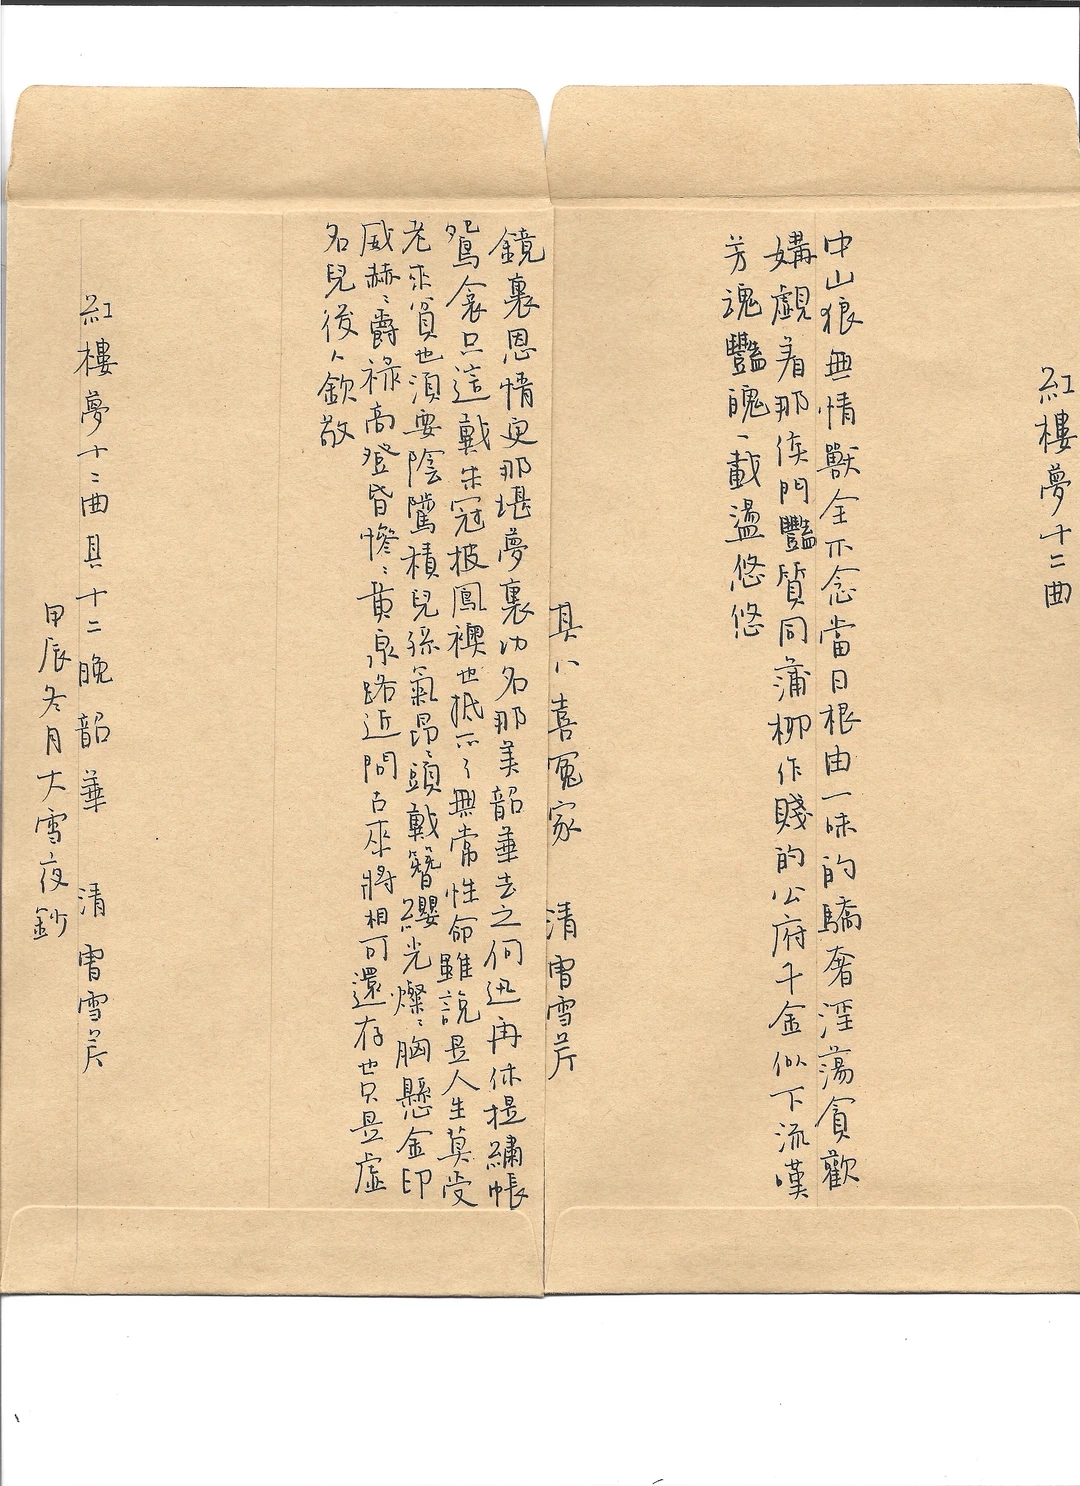 紅樓夢十二曲
中山狼無情獸全不念當日根由一味的驕奢淫蕩貪歡
媾覷着那侯門豔質同蒲柳作賤的公府千金似下流嘆
芳魂豔魄一載盪悠悠
其八喜冤家 清曹雪芹
鏡裏恩情更那堪夢裏功名那美韶華去之何迅再休提繡帳
鴛衾只這戴朱冠披鳳襖也抵不了無常性命雖說是人生莫受
老來貧也須要陰騭積兒孫氣昂ミ頭戴簪纓光燦ミ胸懸金印
威赫ミ爵祿高登昏慘ミ黄泉路近問古來將相可還存也只是虛
名兒後人欽敬
紅樓夢十二曲其十二晚韶華 清曹雪芹
甲辰冬月大雪夜鈔